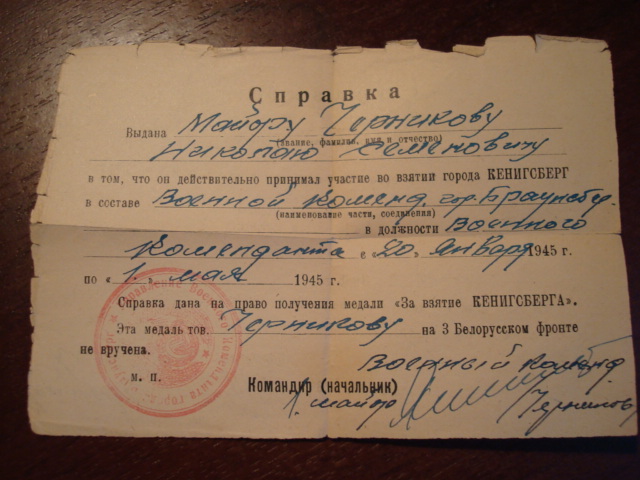 Справка
Выдана Майору Черникову
(звание, фамилия, имя и отчество)
Николаю Семеновичу
в том, что он действительно принимал участие во взятии города КЕНИГСБЕРГ
в составе Военной Коменд. гор. Браунсбер.
(наименование части, соединения)
в должности Военного
Коменданта с «20» января 1945 г.
по «1» мая 1945 г.
Справка дана на право получения медали «За взятие КЕНИГСБЕРГА».
Эта медаль тов. Черникову на 3 Белорусском фронте
не вручена.
Военный Коменд.
м. п. Командир (начальник)
майор Черников
Управление Военного Коменданта города